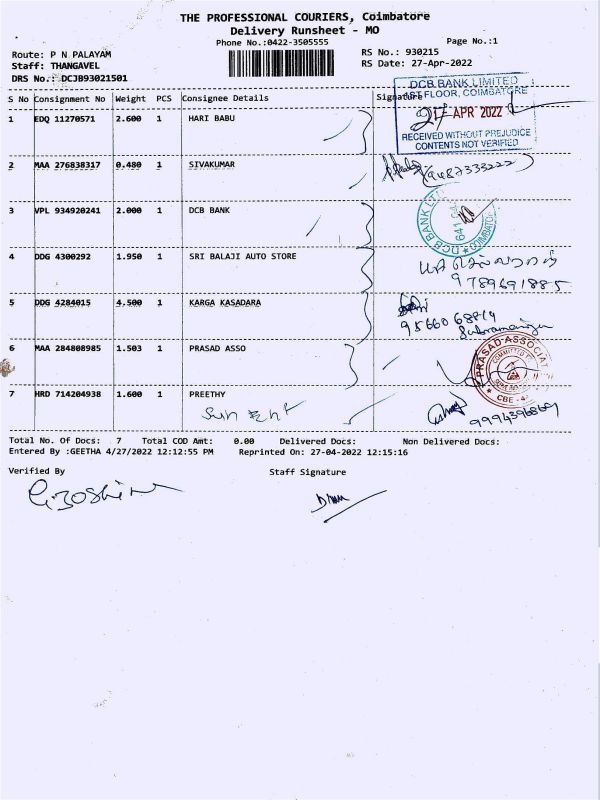 THE PROFESSIONAL COURIERS, Coimbatore
Delivery Runsheet - MO
Phone No.:0422-3505555
Page No.:1
Route: P N PALAYAM
RS No.: 930215
Staff: THANGAVEL
RS Date: 27-Apr-2022
DRS No.: DCJB93021501
S No Consignment No Weight PCS Consignee Details Signature
DCB BANK LIMITED
1ST FLOOR, COIMBATORE
27 APR 2022
RECEIVED WITHOUT PREJUDICE
CONTENTS NOT VERIFIED
1 EDQ 11270571 2.600 1 HARI BABU
2 MAA 276838317 0.480 1 SIVAKUMAR
9487333222
3 VPL 934920241 2.000 1 DCB BANK
DCB BANK LTD
COIMBATORE
4 DDG 4300292 1.950 1 SRI BALAJI AUTO STORE
9789691885
5 DDG 4284015 4.500 1 KARGA KASADARA
9566068814
6 MAA 284808985 1.503 1 PRASAD ASSO
PRASAD ASSOCIAT
CBE - 4
7 HRD 714204938 1.600 1 PREETHY
Total No. Of Docs: 7 Total COD Amt: 0.00 Delivered Docs: Non Delivered Docs:
Entered By :GEETHA 4/27/2022 12:12:55 PM Reprinted On: 27-04-2022 12:15:16
Verified By Staff Signature